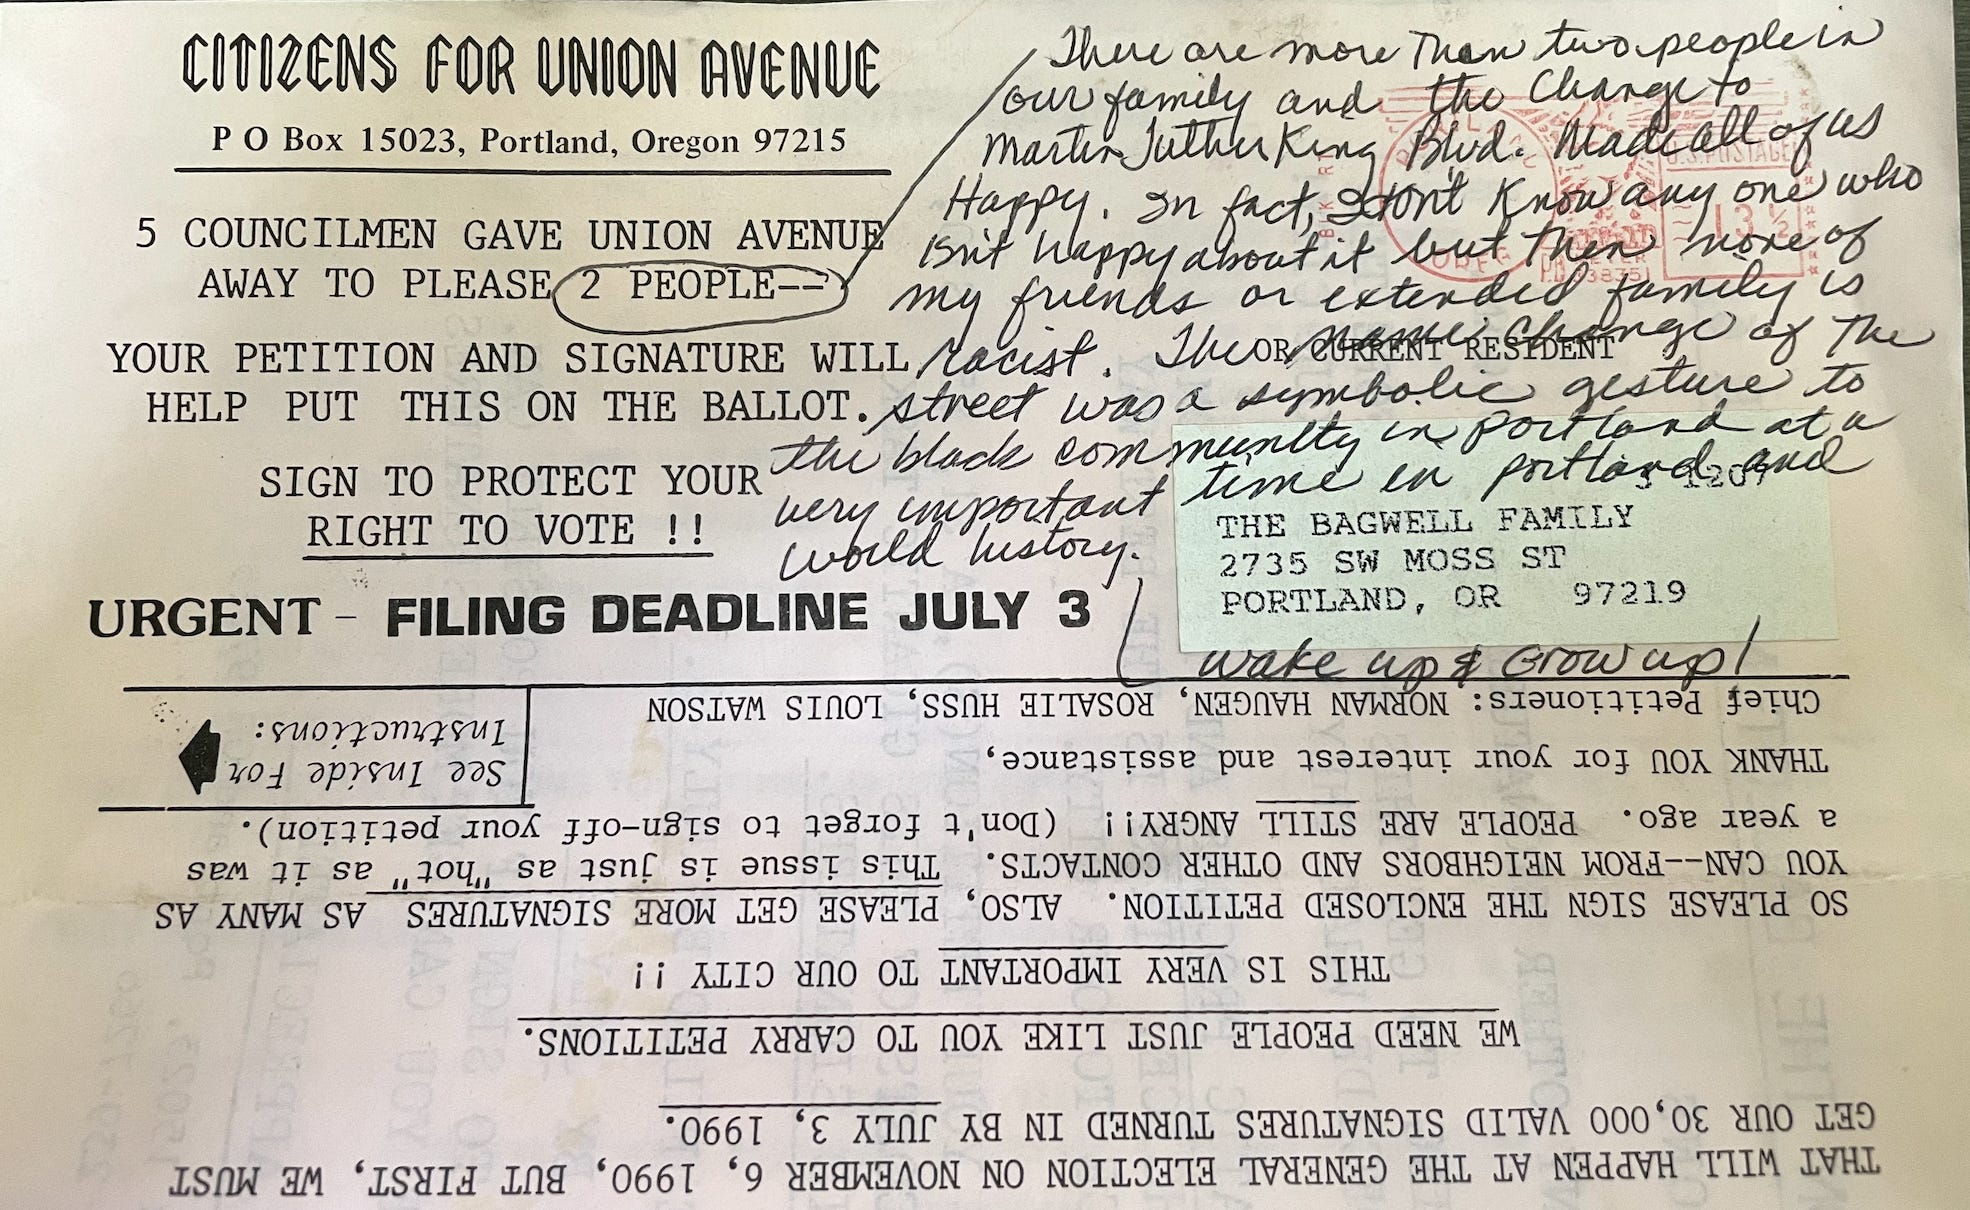 CITIZENS FOR UNION AVENUE
P O Box 15023, Portland, Oregon 97215
5 COUNCILMEN GAVE UNION AVENUE
AWAY TO PLEASE 2 PEOPLE--
YOUR PETITION AND SIGNATURE WILL
HELP PUT THIS ON THE BALLOT.
SIGN TO PROTECT YOUR
RIGHT TO VOTE !!
URGENT - FILING DEADLINE JULY 3
There are more than two people in
our family and the Change to
Martin Luther King Blvd. Made all of us
Happy. In fact, I don't know any one who
isn't happy about it but then none of
my friends or extended family is
racist. The name change of the
street was a symbolic gesture to
the black community in portland at a
very important time in portland and
world history.
wake up & Grow up!
U.S. POSTAGE
13 1/2
OR CURRENT RESIDENT
THE BAGWELL FAMILY
2735 SW MOSS ST
PORTLAND, OR 97219
THAT WILL HAPPEN AT THE GENERAL ELECTION ON NOVEMBER 6, 1990, BUT FIRST, WE MUST
GET OUR 30,000 VALID SIGNATURES TURNED IN BY JULY 3, 1990.
WE NEED PEOPLE JUST LIKE YOU TO CARRY PETITIONS.
THIS IS VERY IMPORTANT TO OUR CITY !!
SO PLEASE SIGN THE ENCLOSED PETITION. ALSO, PLEASE GET MORE SIGNATURES AS MANY AS
YOU CAN--FROM NEIGHBORS AND OTHER CONTACTS. This issue is just as "hot" as it was
a year ago. PEOPLE ARE STILL ANGRY!! (Don't forget to sign-off your petition).
THANK YOU for your interest and assistance,
Chief Petitioners: NORMAN HAUGEN, ROSALIE HUSS, LOUIS WATSON
See Inside For
Instructions: